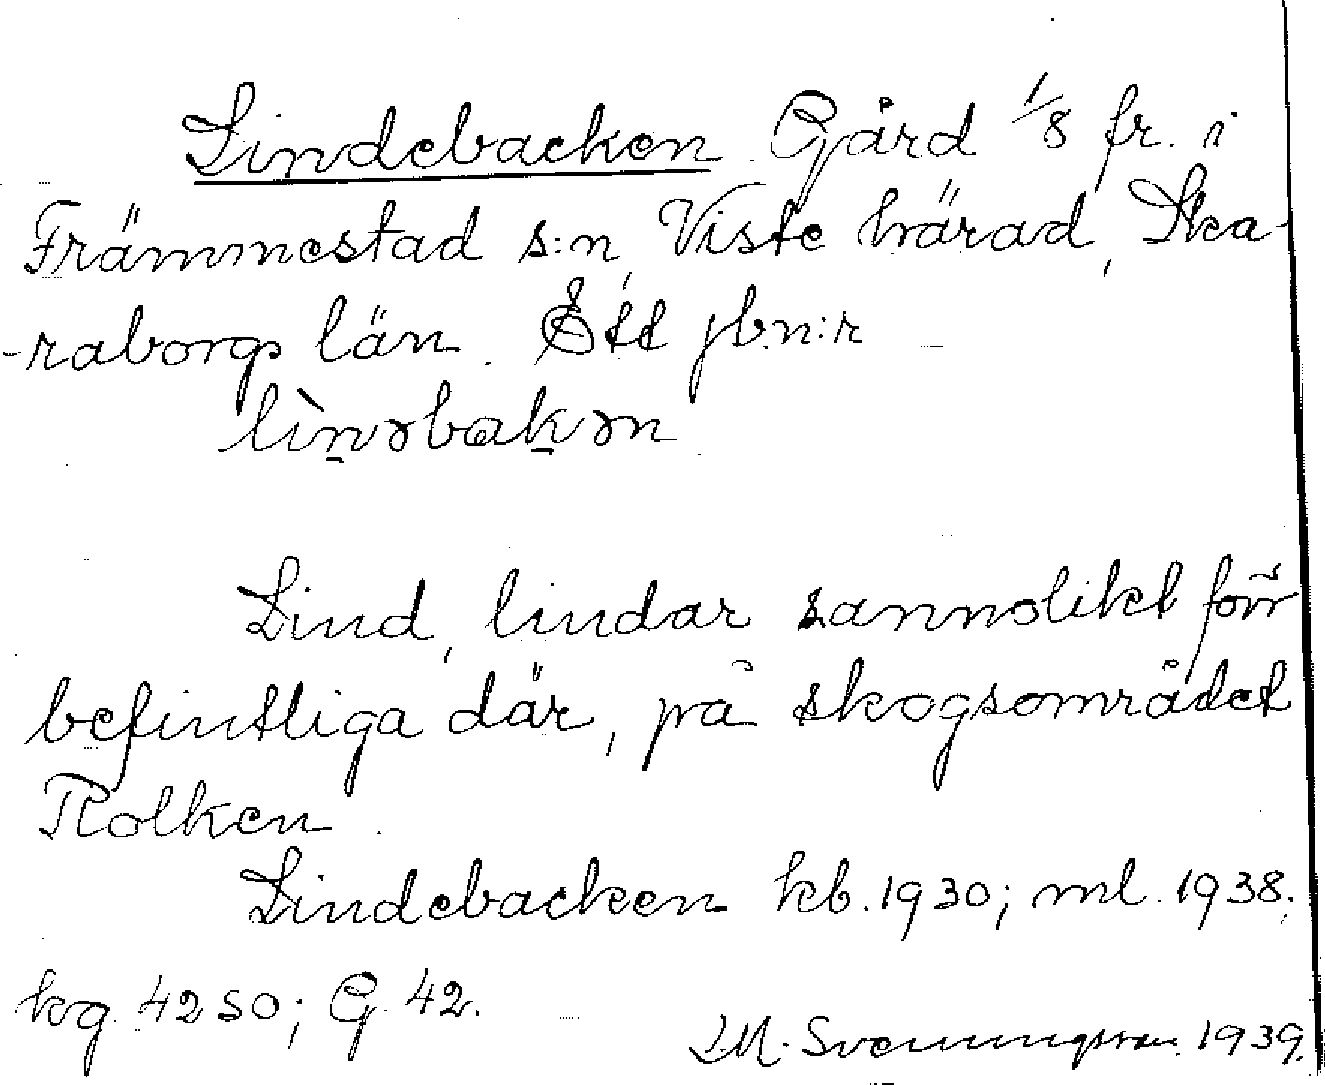 Lindebacken Gård 1/8 fr. i
Främmestad s:n, Viste härad, Ska-
-raborgs län. Ett jb.n:r
lìn̠əbak̠ən
Lind, lindar sannolikt förr
befintliga där, på skogsområdet
Rolken.
Lindebacken kb. 1930; ml. 1938.
kg. 42 SO; G. 42.
J.M. Svenungsson. 1939.